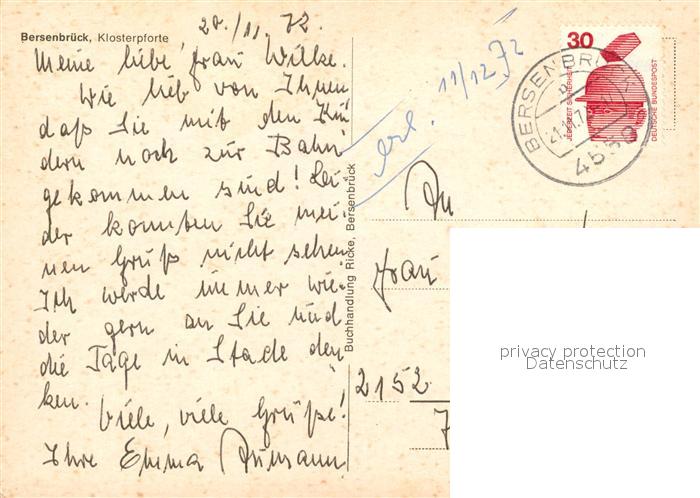 20./11.72
Bersenbrück, Klosterpforte
Meine liebe Frau Wilke.
Wie lieb von Ihnen
daß Sie mit den Kin
dern noch zur Bahn
gekommen sind! Lei-
der konnten Sie mei-
nen Gruß nicht sehen
Ich werde immer wie-
der gern an Sie und
die Tage in Stade den
ken.
Viele, viele Grüße!
Ihre Emma
Buchhandlung Ricke, Bersenbrück
erl. 11/12 72
30
JEDERZEIT SICHERHEIT
DEUTSCHE BUNDESPOST
BERSENBRÜCK
4558
An
Frau
2152
privacy protection
Datenschutz